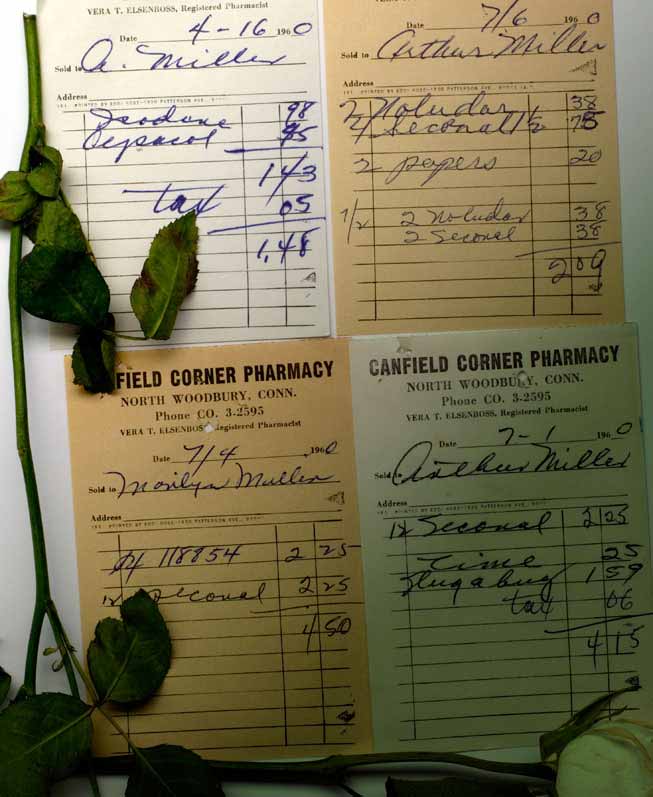 VERA T. ELSENBOSS, Registered Pharmacist
Date 4-16 1960
Sold to A. Miller
Address
98
Cepacol 45
143
tax 05
1,48
Date 7/6 1960
Sold to Arthur Miller
Address
2 Noludar 38
4 Seconal 1½ 75
2 papers 20
1/2 2 Noludar 38
2 Seconal 38
209
FIELD CORNER PHARMACY
NORTH WOODBURY, CONN.
Phone CO. 3-2595
VERA T. ELSENBOSS, Registered Pharmacist
Date 7/4 1960
Sold to Marilyn Miller
Address
118854 2 25
12 Seconal 2 25
4 50
CANFIELD CORNER PHARMACY
NORTH WOODBURY, CONN.
Phone CO. 3-2595
VERA T. ELSENBOSS, Registered Pharmacist
Date 7-1 1960
Sold to Arthur Miller
Address
12 Seconal 2 25
Time 25
Slugabug 1 59
tax 06
4 15